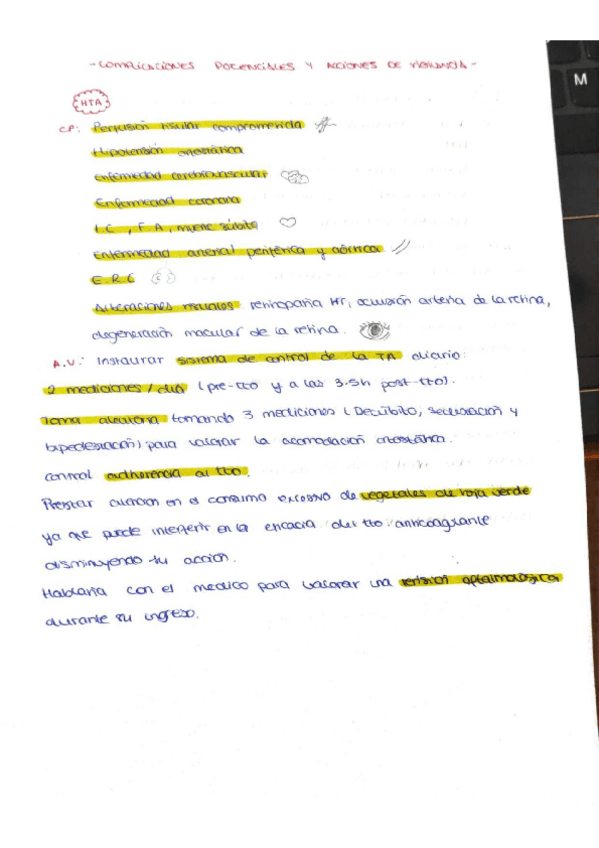 - COMPLICACIONES POTENCIALES Y ACCIONES DE VIGILANCIA -
HTA
CP: Perfusión tisular comprometida
Hipotensión ortostática
Enfermedad cerebrovascular
Enfermedad coronaria
I.C, F.A, muerte súbita
Enfermedad arterial periférica y aórtica
E.R.C
Alteraciones retinopatía HT, oclusión arteria de la retina,
degeneración macular de la retina.
A.V.: Instaurar sistema de control de la TA diario:
2 mediciones/día (pre-tto y a las 3.5h post-tto).
Toma aleatoria tomando 3 mediciones (Decúbito, sedestación y
bipedestación) para valorar la acomodación ortostática.
control adherencia al tto.
Prestar atención en el consumo excesivo de vegetales de hoja verde
ya que puede interferir en la eficacia del tto anticoagulante
disminuyendo su acción.
Hablaría con el médico para valorar una revisión oftalmológica
durante su ingreso.
M